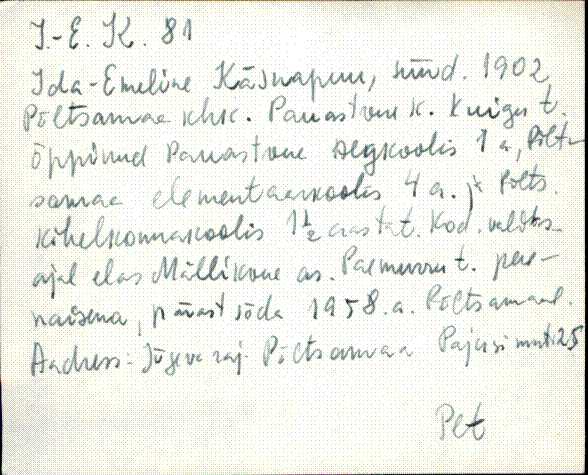 I.-E. K. 81
Ida-Emeline Käsnapuu, sünd. 1902
Põltsamaa khk. Pauastvere k. Kuigu t.
õppinud Pauastvere algkoolis 1 a., Põlt-
samaa elementaarkoolis 4 a. ja Põlts.
kihelkonnakoolis 1 1/2 aastat. Kod. valits.
ajal elas Mällikvere as. t. pere-
naisena, pärast sõda 1958. a. Põltsamaal.
Aadress: Jõgeva raj. Põltsamaa Pajusi mnt. 25
Pet